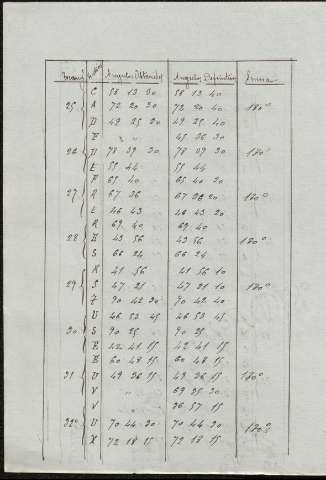 Angulos Obtenidos Angulos Definitivos Suma
C 58 13 30 58 13 40
25 A 72 20 30 72 20 40 180°
D 49 25 20 49 25 40
E " " 45 36 30
26 D 78 39 30 78 39 30 180°
E 55 44 55 44
F 65 40 65 40 20
27 R 67 36 67 36 20 180°
E 46 43 46 43 20
R 69 40 69 40
28 E 43 56 43 56 180°
S 66 24 66 24
K 41 56 41 56 10
29 S 47 21 47 21 10 180°
Z 90 42 30 90 42 40
U 46 53 45 46 53 45
30 S 90 25 90 25
R 42 41 15 42 41 15
B 60 48 15 60 48 15
31 U 49 36 15 49 36 15 180°
V " 69 35 30
V " 36 57 15
32 U 70 44 30 70 44 30 180°
X 72 18 15 72 18 15